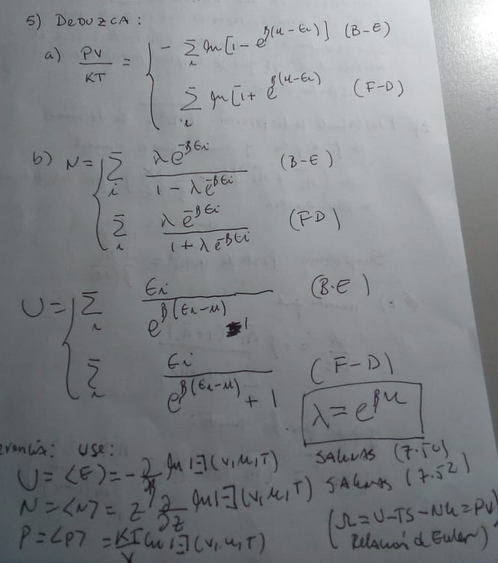 5) DEDUZCA:
a) PV/KT = { - Σ_i ln[1 - e^β(μ-εi)] (B-E)
Σ_i ln[1 + e^β(μ-εi) (F-D)
b) N = { Σ_i λe^-βεi / 1 - λe^-βεi (B-E)
Σ_i λe^-βεi / 1 + λe^-βεi (FD)
U = { Σ_i εi / e^β(εi-μ) - 1 (B-E)
Σ_i εi / e^β(εi-μ) + 1 (F-D)
λ = e^βμ
use:
U = <E> = - ∂/∂β ln Ξ(V,μ,T) SALINAS (7.50)
N = <N> = z ∂/∂z ln Ξ(V,μ,T) SALINAS (7.52)
P = <P> = KT/V ln Ξ(V,μ,T)
(Ω = U-TS-Nμ = PV)
Relación de Euler)